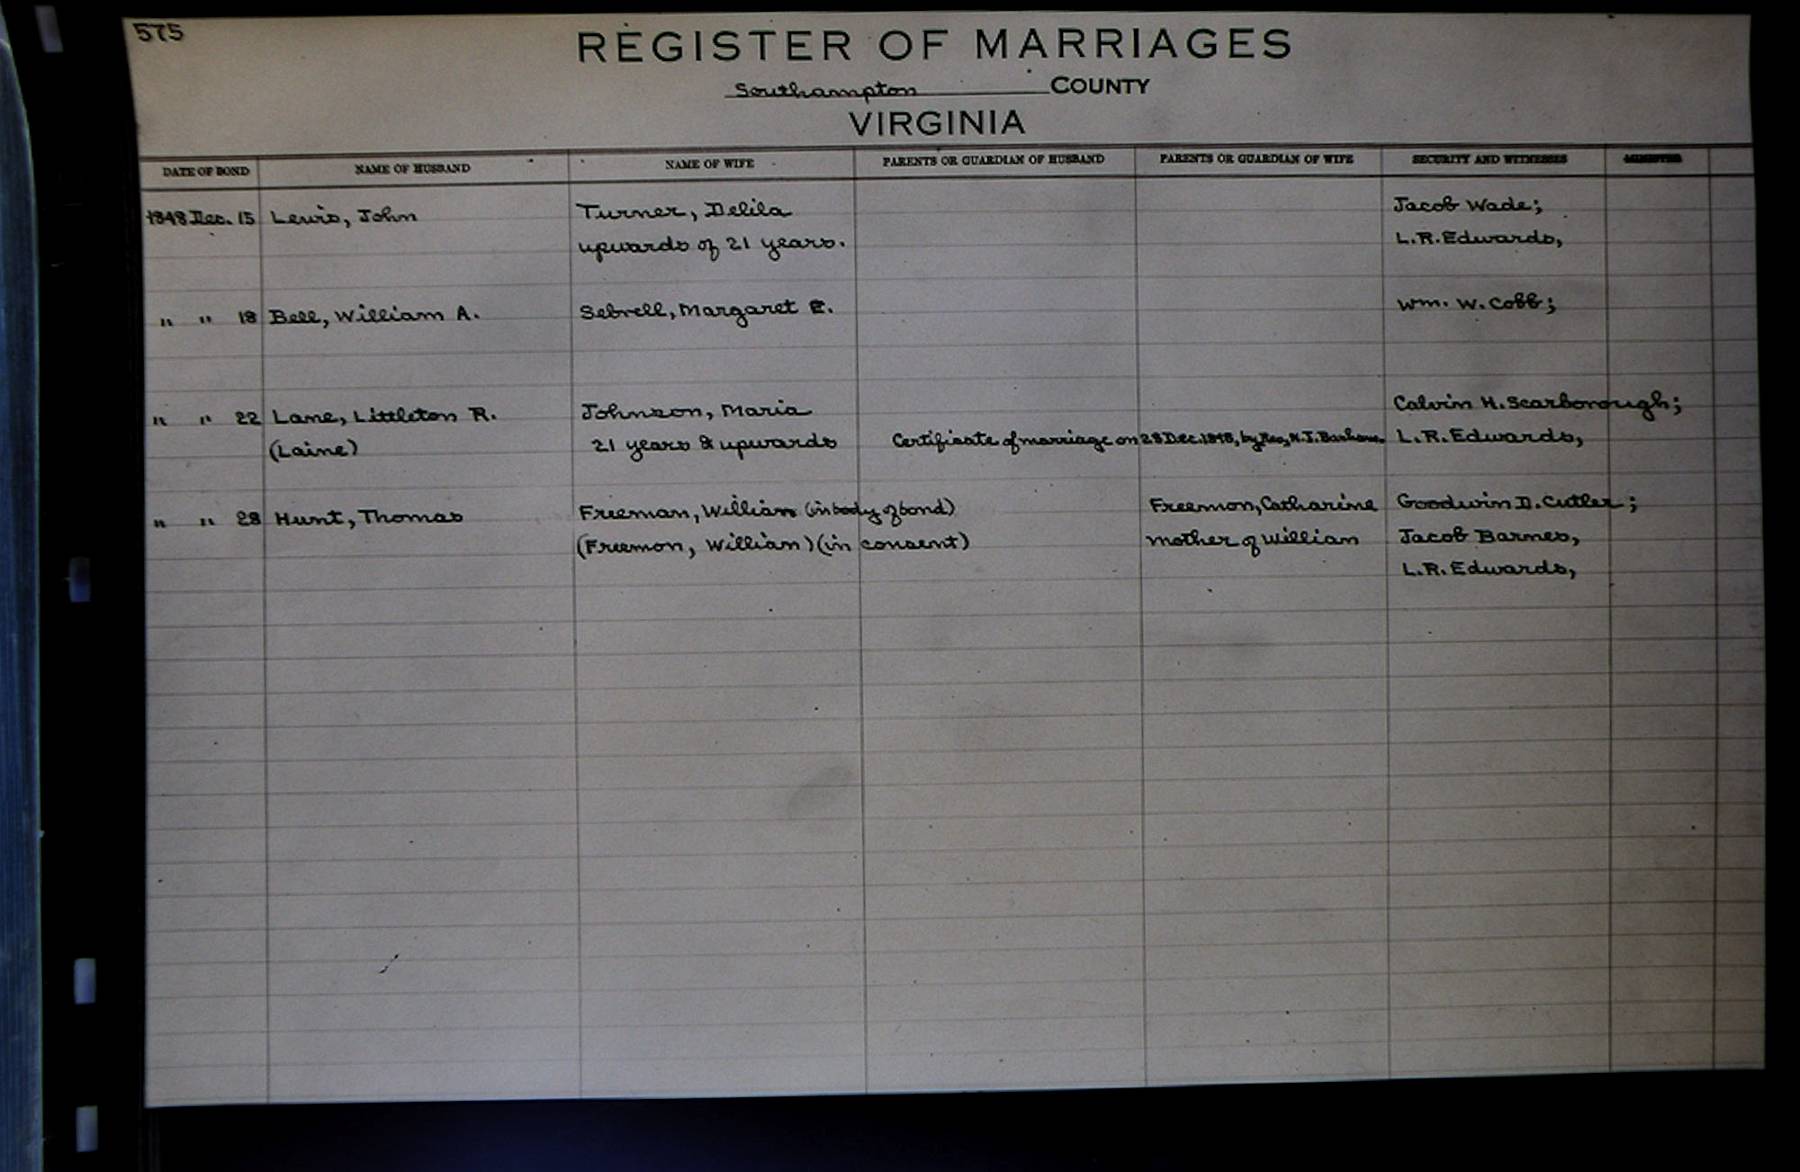 575
REGISTER OF MARRIAGES
Southampton COUNTY
VIRGINIA
DATE OF BOND NAME OF HUSBAND NAME OF WIFE PARENTS OR GUARDIAN OF HUSBAND PARENTS OR GUARDIAN OF WIFE SECURITY AND WITNESSES MINISTER
1848 Dec. 15 Lewis, John Turner, Delila Jacob Wade;
upwards of 21 years. L.R. Edwards,
" " 18 Bell, William A. Sebrell, Margaret E. Wm. W. Cobb;
" " 22 Lane, Littleton R. Johnson, Maria Calvin H. Scarborough;
(Laine) 21 years & upwards Certificate of marriage on 28 Dec. 1848, by Rev. L.R. Edwards,
" " 28 Hunt, Thomas Freeman, William (in body of bond) Freemon, Catharine Goodwin D. Cutler;
(Freemon, William) (in consent) mother of William Jacob Barnes,
L.R. Edwards,